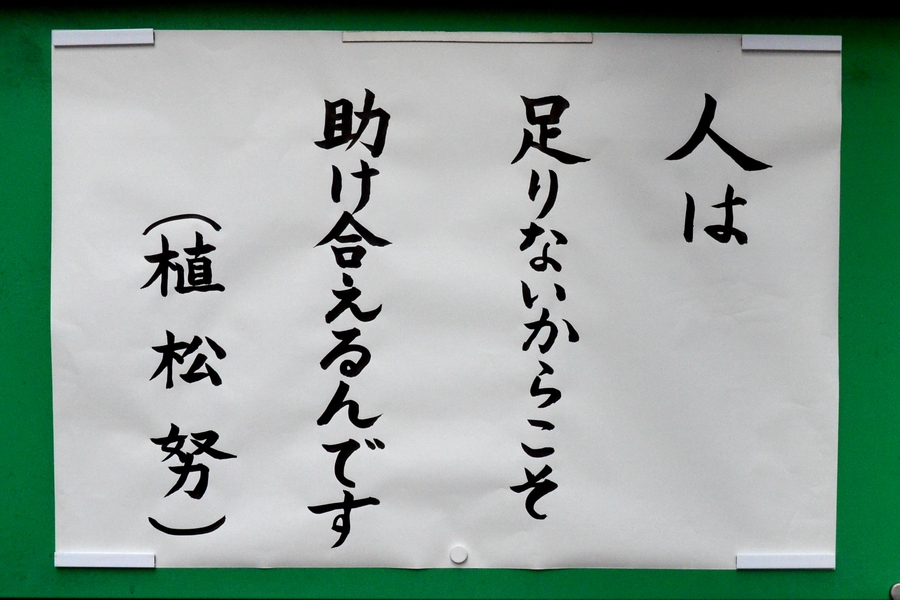 人は
足りないからこそ
助け合えるんです
（植松努）